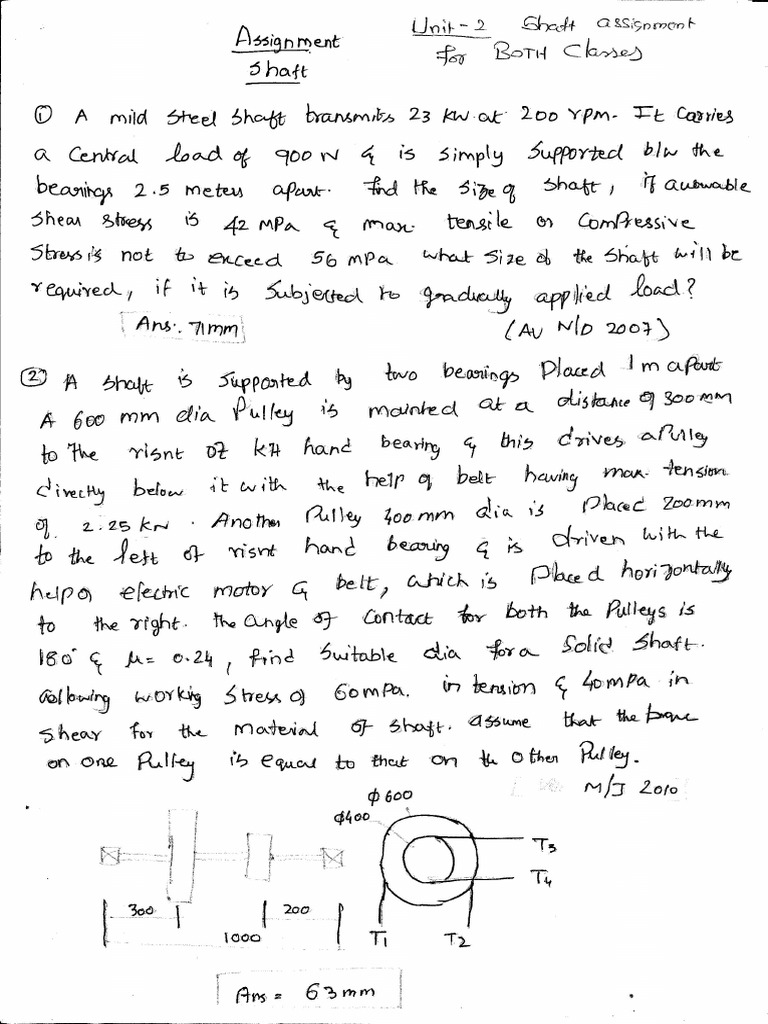 Assignment
Shaft
Unit-2 Shaft assignment
for BOTH Classes
① A mild steel shaft transmits 23 kW at 200 rpm. It carries
a central load of 900 N & is simply supported b/w the
bearings 2.5 meters apart. find the size of shaft, if allowable
shear stress is 42 MPa & max. tensile or compressive
stress is not to exceed 56 MPa what size of the shaft will be
required, if it is subjected to gradually applied load?
Ans:. 71mm
(AU N/D 2007)
② A shaft is supported by two bearings placed 1m apart
A 600 mm dia pulley is mounted at a distance of 300 mm
to the right of left hand bearing & this drives a pulley
directly below it with the help of belt having max. tension
of 2.25 kN. Another pulley 400 mm dia is placed 200mm
to the left of right hand bearing & is driven with the
help of electric motor & belt, which is placed horizontally
to the right. the angle of contact for both the pulleys is
180° & μ= 0.24, find suitable dia for a solid shaft.
allowing working stress of 60MPa. in tension & 40MPa in
shear for the material of shaft. assume that the
on one pulley is equal to that on the other pulley.
M/J 2010
φ600
φ400
T3
T4
300
200
1000
T1
T2
Ans = 63mm